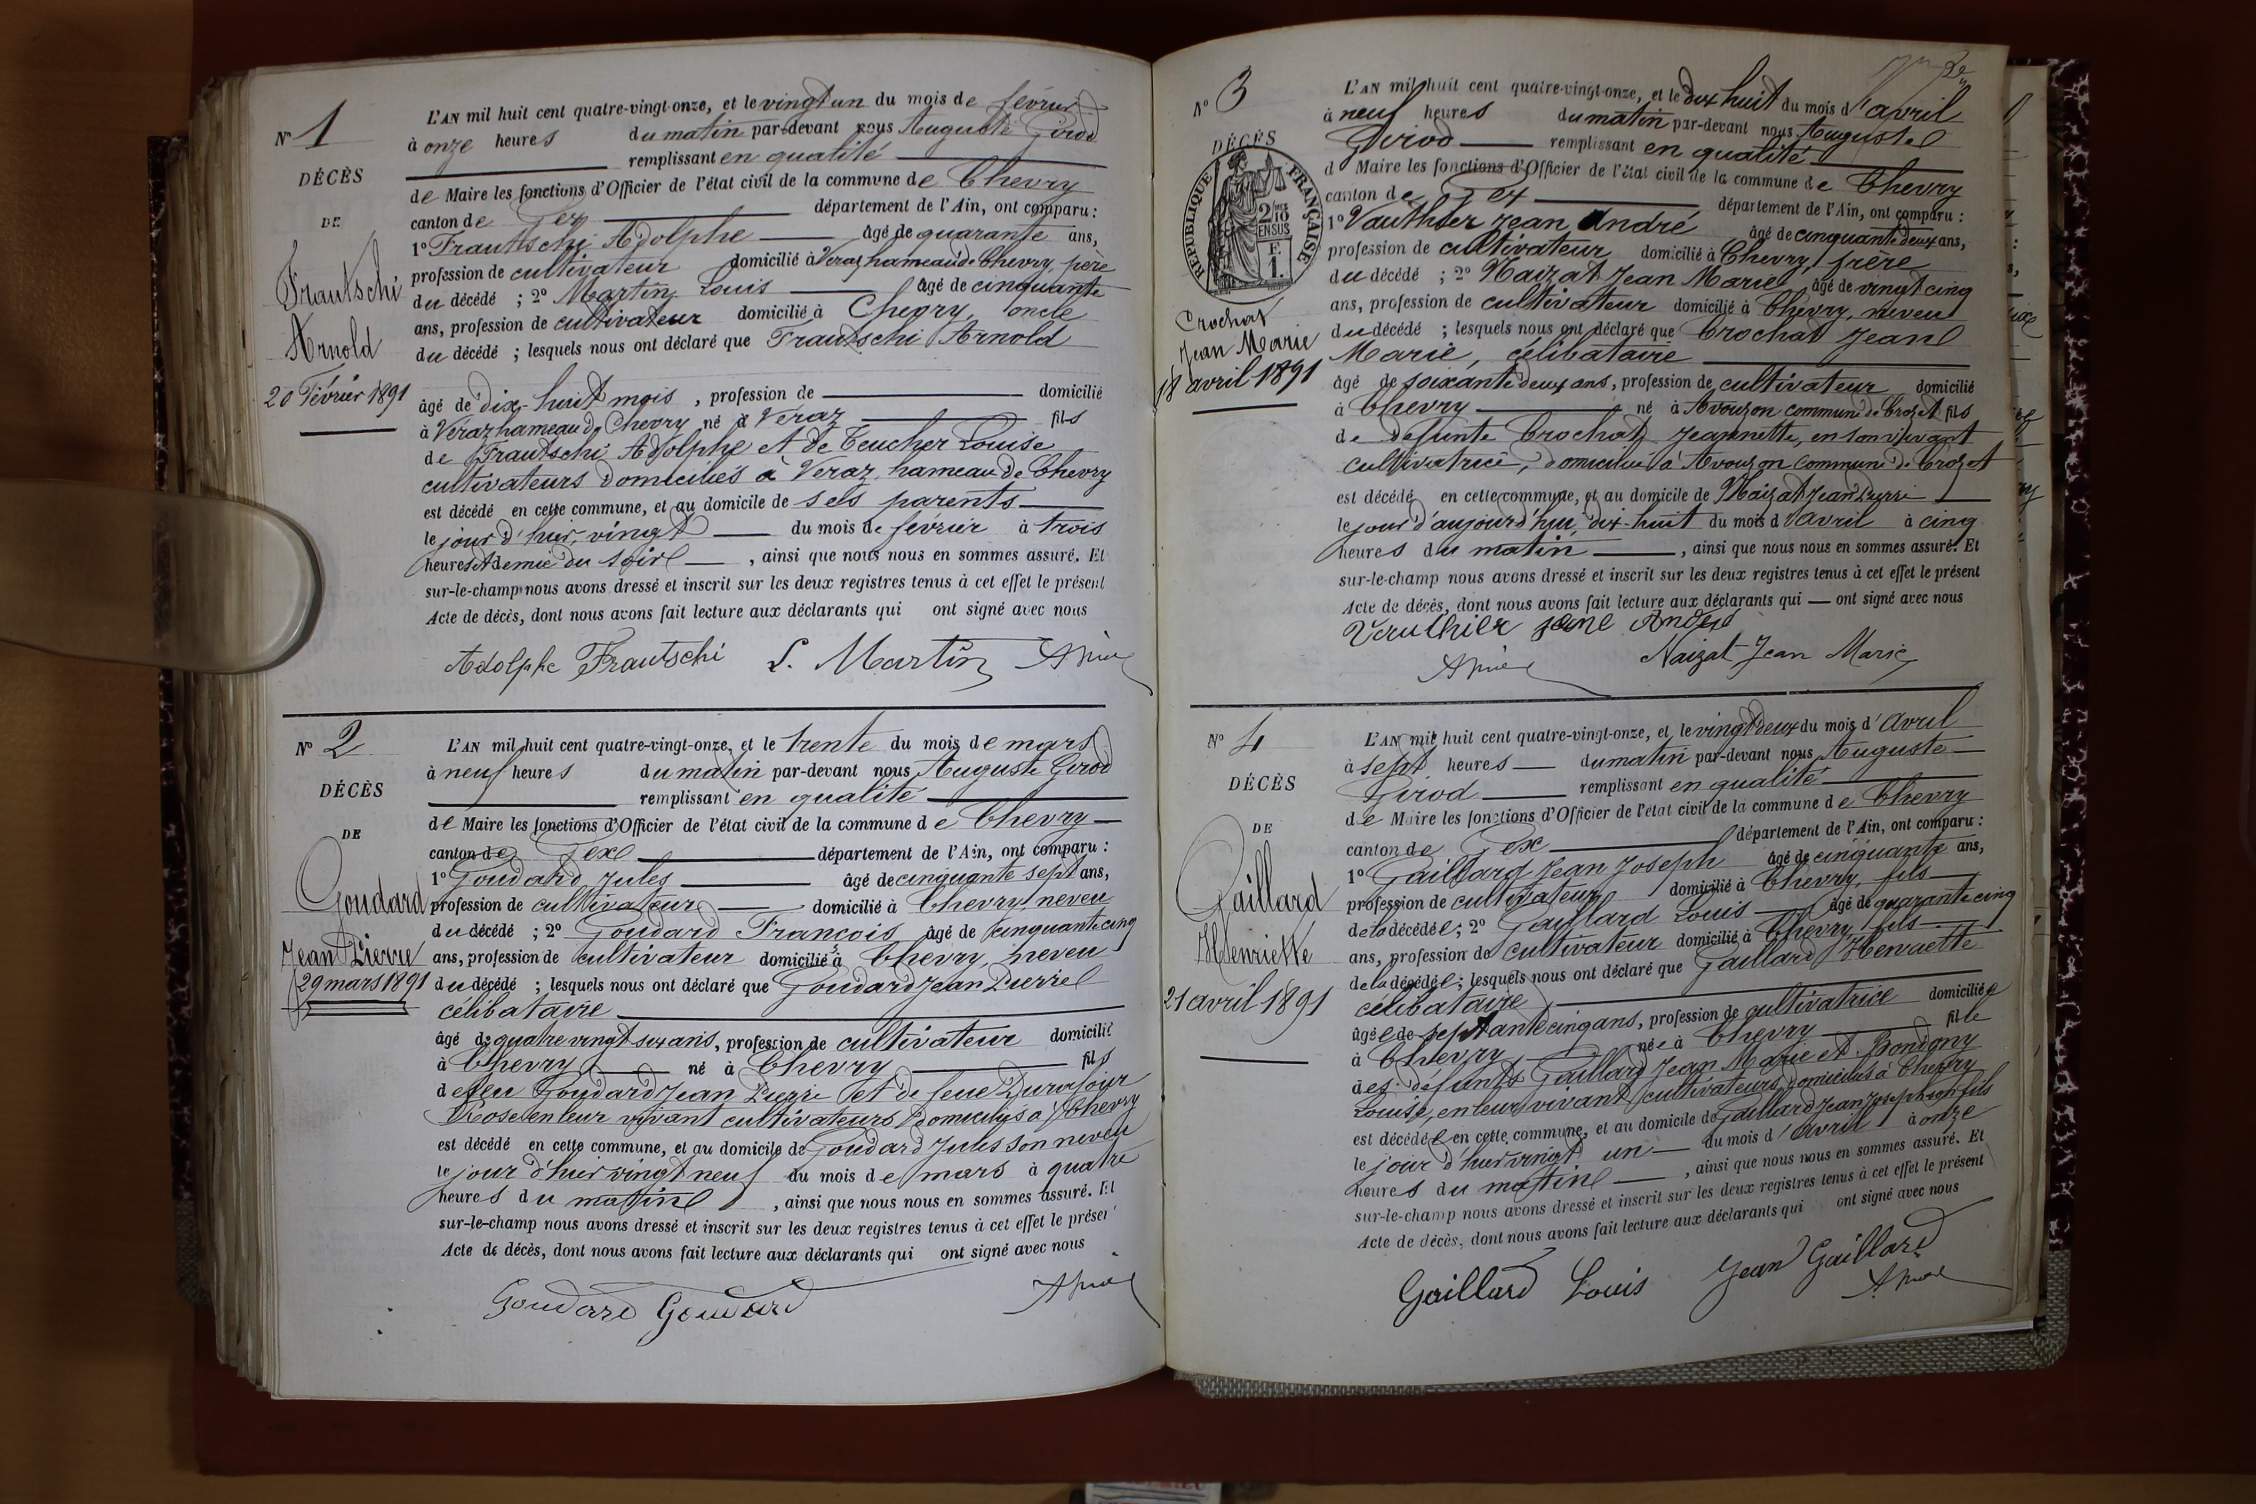 N° 1
DÉCÈS
DE
Frautschi
Arnold
20 Février 1891
L'AN mil huit cent quatre-vingt-onze, et le vingt un du mois de février
à onze heures du matin par-devant nous Auguste Girod
remplissant en qualité
de Maire les fonctions d'Officier de l'état civil de la commune de Chevry
canton de Gex département de l'Ain, ont comparu :
1° Frautschi Adolphe âgé de quarante ans,
profession de cultivateur domicilié à Véraz hameau de Chevry, père
du décédé ; 2° Martin Louis âgé de cinquante
ans, profession de cultivateur domicilié à Chevry, oncle
du décédé ; lesquels nous ont déclaré que Frautschi Arnold
âgé de dix-huit mois, profession de domicilié
à Véraz hameau de Chevry né à Véraz fils
de Frautschi Adolphe et de Teucher Louise
cultivateurs domiciliés à Véraz, hameau de Chevry
est décédé en cette commune, et au domicile de ses parents
le jour d'hier, vingt du mois de février à trois
heures et demie du soir, ainsi que nous nous en sommes assuré. Et
sur-le-champ nous avons dressé et inscrit sur les deux registres tenus à cet effet le présent
Acte de décès, dont nous avons fait lecture aux déclarants qui ont signé avec nous
Adolphe Frautschi L. Martin
N° 2
DÉCÈS
DE
Goudard
Jean Pierre
29 mars 1891
L'AN mil huit cent quatre-vingt-onze, et le trente du mois de mars
à neuf heures du matin par-devant nous Auguste Girod
remplissant en qualité
de Maire les fonctions d'Officier de l'état civil de la commune de Chevry
canton de Gex département de l'Ain, ont comparu :
1° Goudard Jules âgé de cinquante sept ans,
profession de cultivateur domicilié à Chevry, neveu
du décédé ; 2° Goudard François âgé de cinquante cinq
ans, profession de cultivateur domicilié à Chevry, neveu
du décédé ; lesquels nous ont déclaré que Goudard Jean Pierre
célibataire
âgé de quatre vingt six ans, profession de cultivateur domicilié
à Chevry né à Chevry fils
de feu Goudard Jean Pierre et de feue
Rose en leur vivant cultivateurs domiciliés à Chevry
est décédé en cette commune, et au domicile de Goudard Jules son neveu
le jour d'hier vingt neuf du mois de mars à quatre
heures du matin, ainsi que nous nous en sommes assuré. Et
sur-le-champ nous avons dressé et inscrit sur les deux registres tenus à cet effet le présen
Acte de décès, dont nous avons fait lecture aux déclarants qui ont signé avec nous
Goudard Goudard
N° 3
DÉCÈS
RÉPUBLIQUE FRANÇAISE
2/10 EN SUS
F. 1.
Crochat
Jean Marie
18 avril 1891
L'AN mil huit cent quatre-vingt-onze, et le dix huit du mois d'avril
à neuf heures du matin par-devant nous Auguste
Girod remplissant en qualité
d Maire les fonctions d'Officier de l'état civil de la commune de Chevry
canton de Gex département de l'Ain, ont comparu :
1° Vauthier Jean André âgé de cinquante deux ans,
profession de cultivateur domicilié à Chevry, frère
du décédé ; 2° Naizat Jean Marie âgé de vingt cinq
ans, profession de cultivateur domicilié à Chevry, neveu
du décédé ; lesquels nous ont déclaré que Crochat Jean
Marie, célibataire
âgé de soixante deux ans, profession de cultivateur domicilié
à Chevry né à Avouzon commune de Crozet fils
de défunte Crochat Jeannette, en son vivant
cultivatrice, domiciliée à Avouzon commune de Crozet
est décédé en cette commune, et au domicile de Naizat Jean Pierre
le jour d'aujourd'hui dix-huit du mois d'avril à cinq
heures du matin, ainsi que nous nous en sommes assuré. Et
sur-le-champ nous avons dressé et inscrit sur les deux registres tenus à cet effet le présent
Acte de décès, dont nous avons fait lecture aux déclarants qui — ont signé avec nous
Naizat Jean Marie
N° 4
DÉCÈS
DE
Gaillard
Henriette
21 avril 1891
L'AN mil huit cent quatre-vingt-onze, et le vingt deux du mois d'avril
à sept heures du matin par-devant nous Auguste
Girod remplissant en qualité
de Maire les fonctions d'Officier de l'état civil de la commune de Chevry
canton de Gex département de l'Ain, ont comparu :
1° Gaillard Jean Joseph âgé de cinquante ans,
profession de cultivateur domicilié à Chevry, fils
de la décédée ; 2° Gaillard Louis âgé de quarante cinq
ans, profession de cultivateur domicilié à Chevry, fils
de la décédée ; lesquels nous ont déclaré que Gaillard Henriette
célibataire
âgée de septante cinq ans, profession de cultivatrice domiciliée
à Chevry née à Chevry fille
des défunts Gaillard Jean Marie et
Louise, en leur vivant cultivateurs domiciliés à Chevry
est décédée en cette commune, et au domicile de Gaillard Jean Joseph son fils
le jour d'hier vingt un du mois d'avril à onze
heures du matin, ainsi que nous nous en sommes assuré. Et
sur-le-champ nous avons dressé et inscrit sur les deux registres tenus à cet effet le présent
Acte de décès, dont nous avons fait lecture aux déclarants qui ont signé avec nous
Gaillard Louis Jean Gaillard